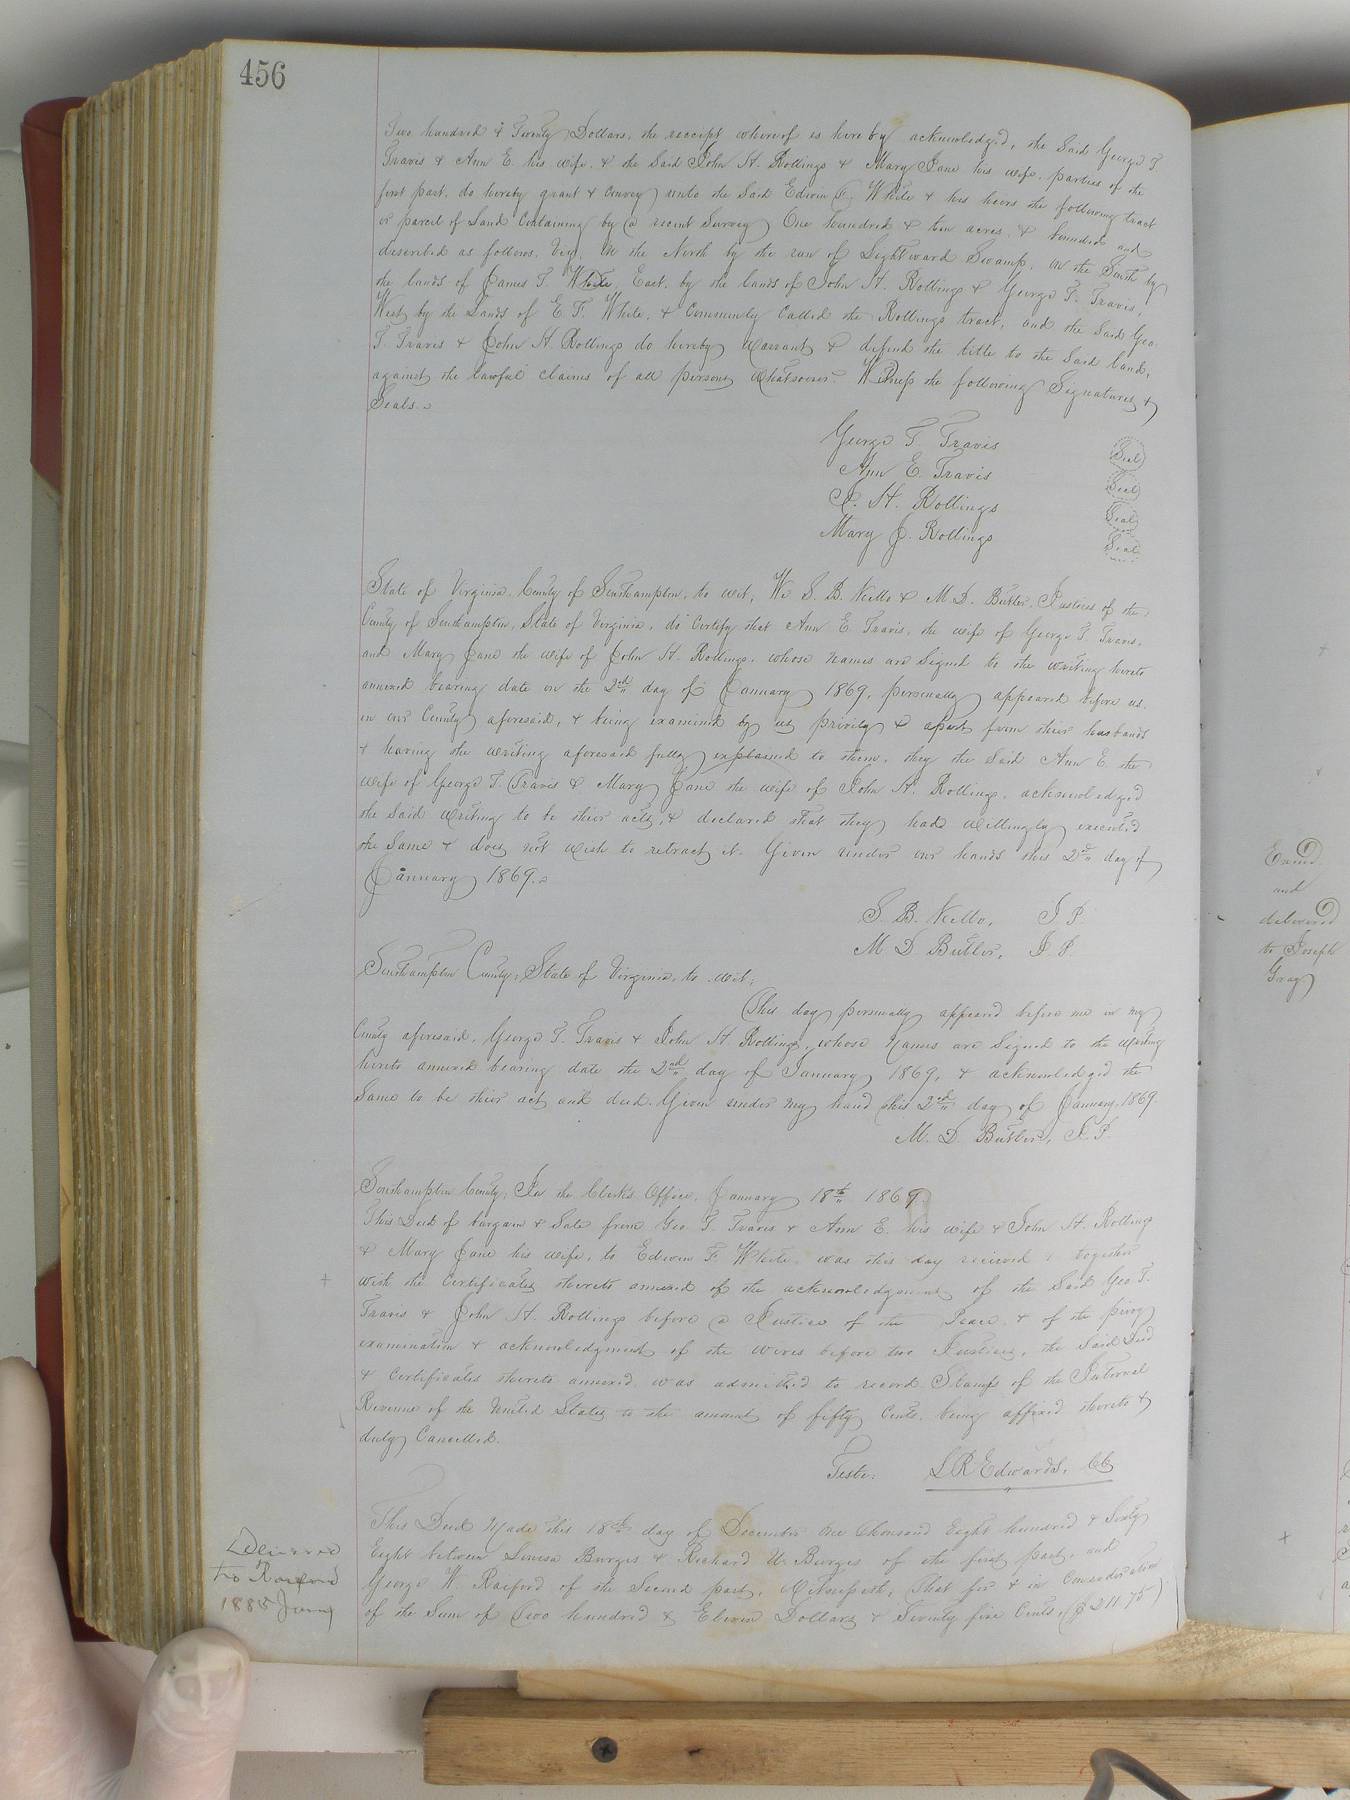 456
Two hundred & Twenty Dollars, the receipt whereof is hereby acknowledged, the Said George T.
Travis & Ann E. his wife, & the Said John H. Rollings & Mary Jane his wife, parties of the
first part, do hereby grant & convey unto the Said Edwin F. White & his heirs the following tract
or parcel of Land Containing by a recent Survey One hundred & ten acres, & bounded and
described as follows, Viz, On the North by the run of Lightwood Swamp, on the South by
the lands of James T. White, East, by the lands of John H. Rollings & George T. Travis,
West by the Lands of E. F. White, & Commonly Called the Rollings tract, and the Said Geo.
T. Travis & John H. Rollings do hereby Warrant & defend the title to the Said land,
against the lawful claims of all persons Whatsoever. Witness the following Signatures &
Seals.
George T. Travis Seal
Ann E. Travis Seal
J. H. Rollings Seal
Mary J. Rollings Seal
State of Virginia, County of Southampton, to wit, We S. B. Kello & M. D. Butler, Justices of the
County of Southampton, State of Virginia, do Certify that Ann E. Travis, the wife of George T. Travis,
and Mary Jane the wife of John H. Rollings, whose names are Signed to the writing hereto
annexed bearing date on the 2nd day of January 1869, personally appeared before us,
in our County aforesaid, & being examined by us privily & apart from their husbands
& having the writing aforesaid fully explained to them, they the Said Ann E. the
wife of George T. Travis & Mary Jane the wife of John H. Rollings, acknowledged
the Said writing to be their acts, & declared that they had willingly executed
the Same & does not wish to retract it. Given under our hands this 2d day of
January 1869.
S. B. Kello, J P.
M D Butler, J. P.
Southampton County, State of Virginia, to wit,
This day personally appeared before me in my
County aforesaid, George T. Travis & John H. Rollings, whose names are Signed to the writing
hereto annexed bearing date the 2nd day of January 1869, & acknowledged the
Same to be their act and deed. Given under my hand this 2nd day of January, 1869.
M. D. Butler, J. P.
Southampton County, In the Clerk's Office, January 18th 1869.
This Deed of bargain & Sale from Geo T. Travis & Ann E. his wife & John H. Rollings
& Mary Jane his wife, to Edwin F. White, was this day received & together
with the Certificates thereto annexed of the acknowledgment of the Said Geo T.
Travis & John H. Rollings before a Justice of the Peace, & of the privy
examination & acknowledgment of the wives before two Justices, the Said Deed
& Certificates thereto annexed, was admitted to record Stamps of the Internal
Revenue of the United States to the amount of fifty Cents, being affixed thereto &
duly Cancelled.
Teste: L R Edwards, CC
This Deed Made this 18th day of December One thousand Eight hundred & Sixty
Eight between Louisa Burges & Richard U. Burges of the first part, and
George W. Raiford of the Second part, Witnesseth, That for & in Consideration
of the Sum of Two hundred & Eleven Dollars & Seventy five Cents, ($211.75)
Delivered
to Raiford
1885
Exam'd
and
delivered
to Joseph
Gray